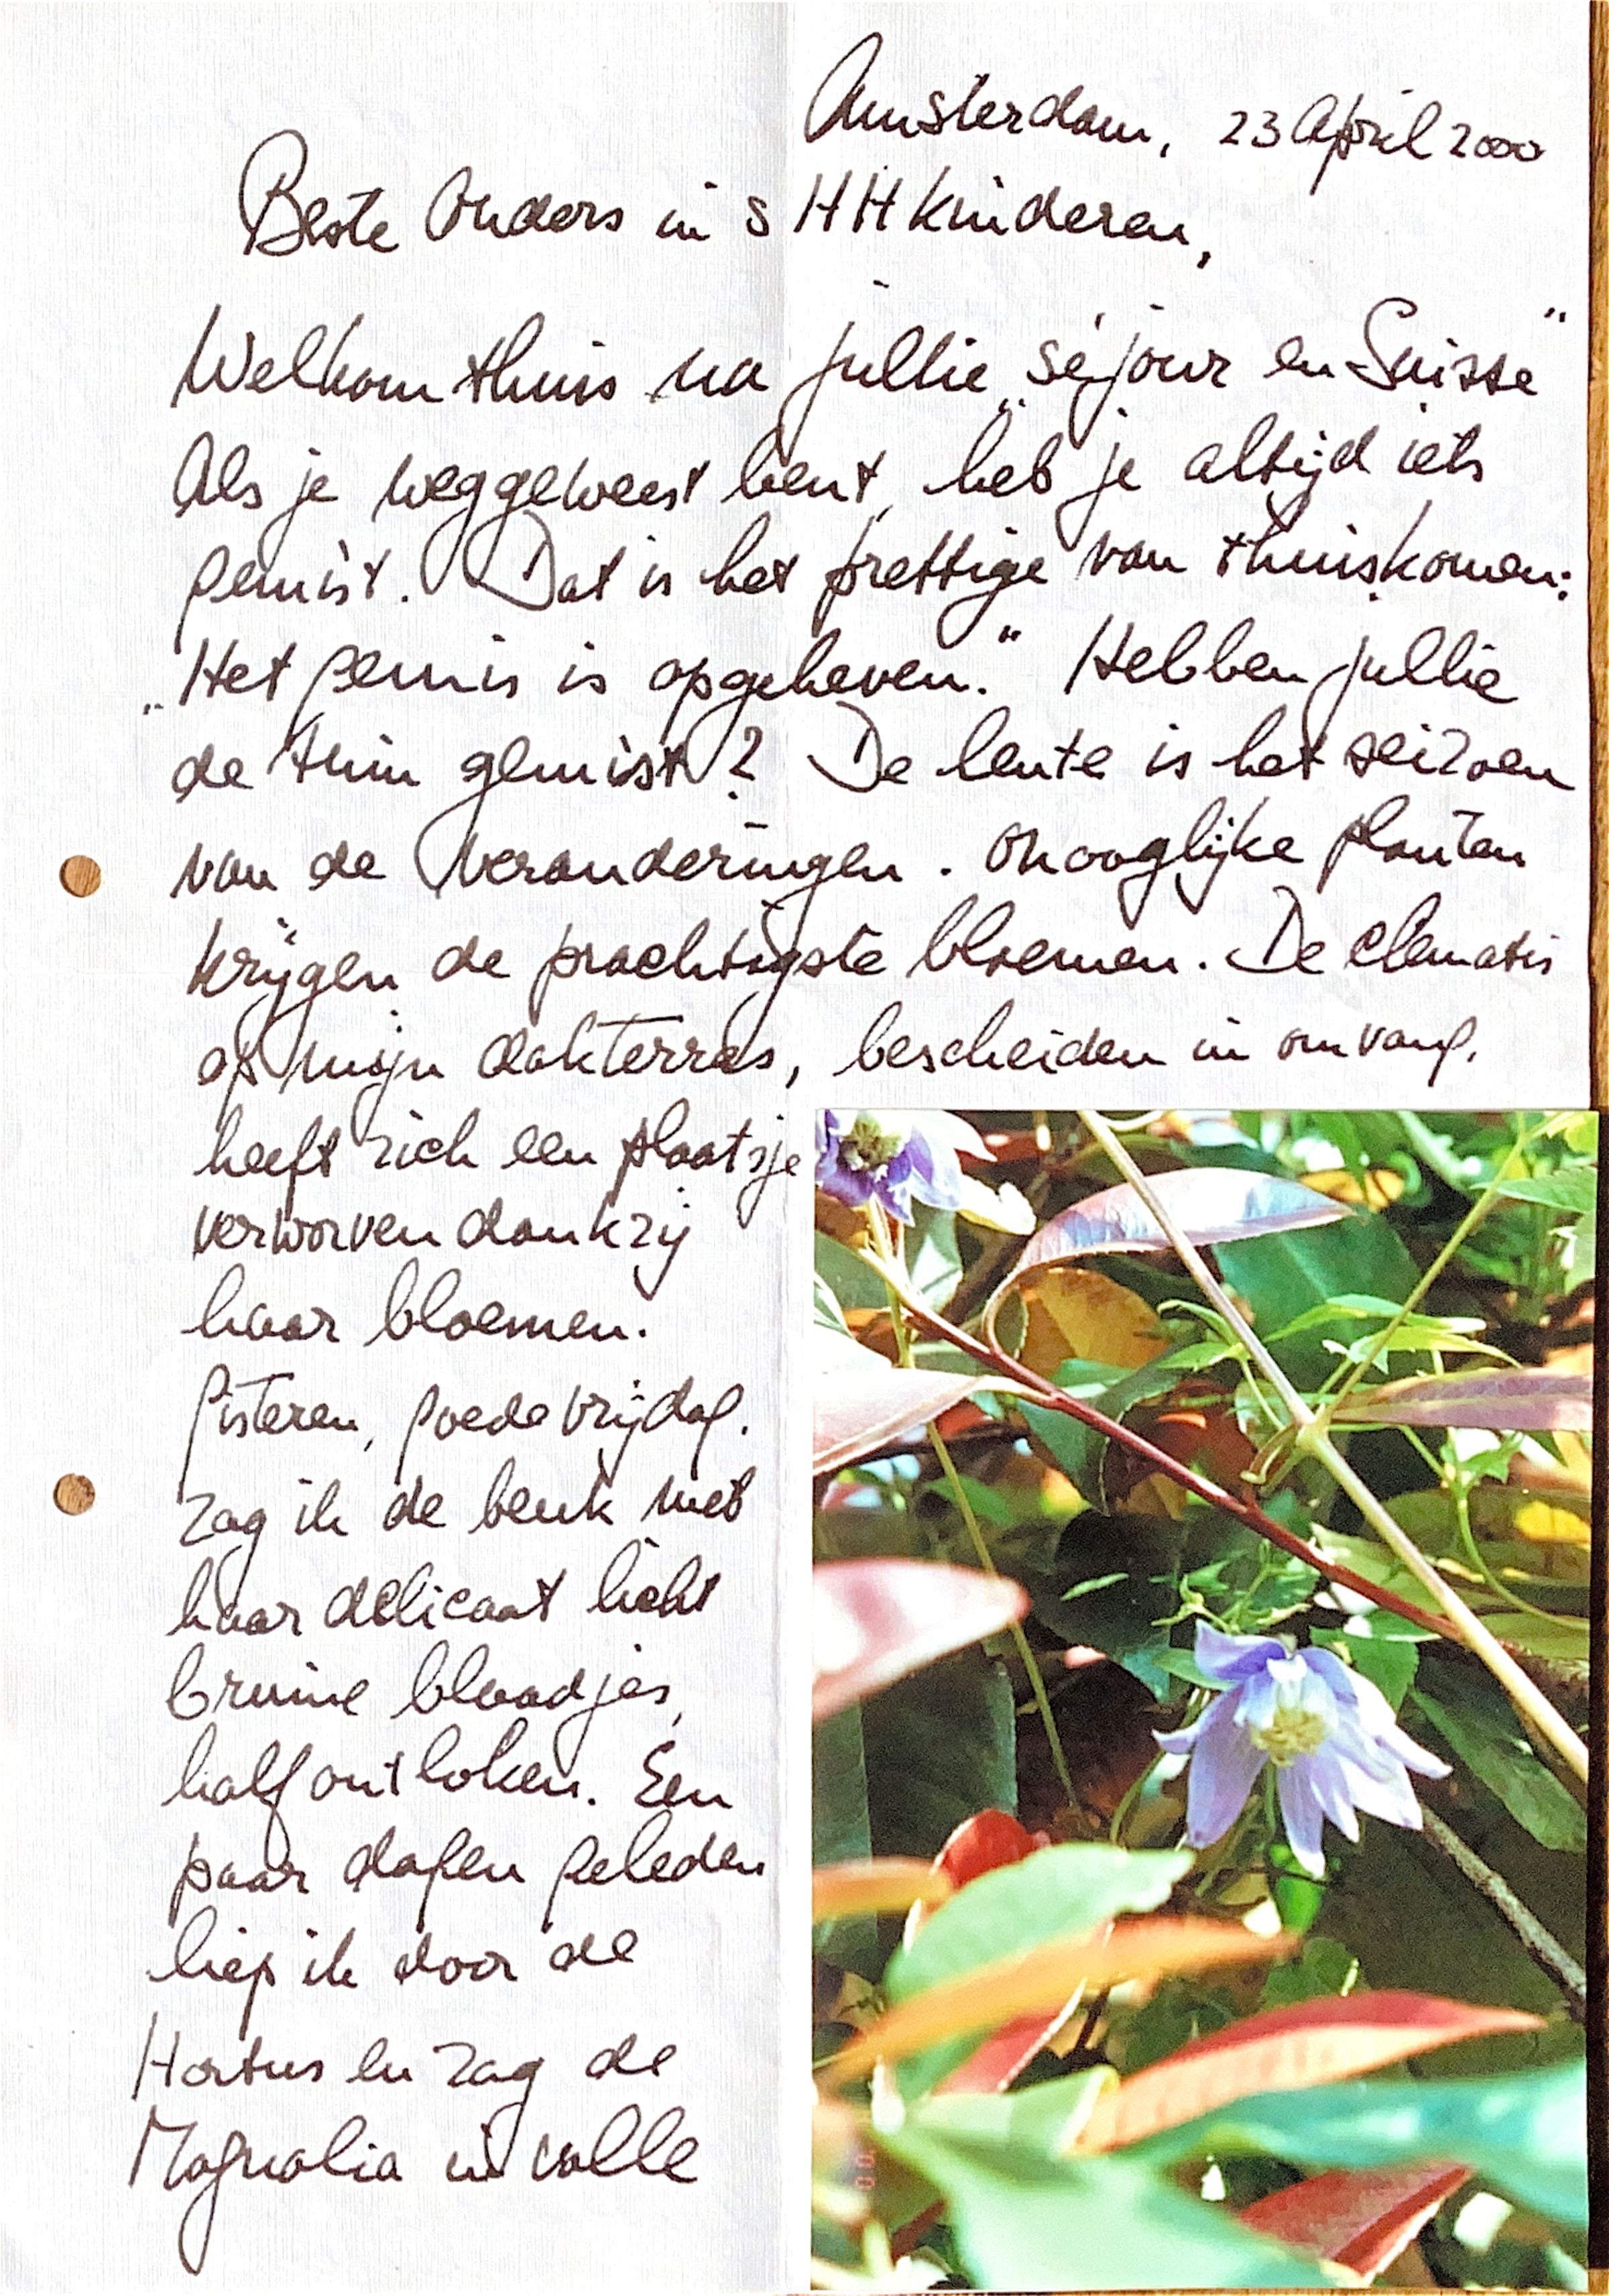 Amsterdam, 23 April 2000
Beste Ouders in s HHkinderen,
Welkom thuis na jullie „séjour en Suisse”
Als je weggeweest bent, heb je altijd iets
gemist. Dat is het prettige van thuiskomen:
„Het gemis is opgeheven.” Hebben jullie
de tuin gemist? De lente is het seizoen
van de veranderingen. Onooglijke planten
krijgen de prachtigste bloemen. De clematis
op mijn dakterras, bescheiden in omvang,
heeft zich een plaatsje
verworven dankzij
haar bloemen.
Gisteren, goede vrijdag,
zag ik de beuk met
haar delicaat licht
bruine blaadjes,
half ontloken. Een
paar dagen geleden
liep ik door de
Hortus en zag de
Magnolia in volle